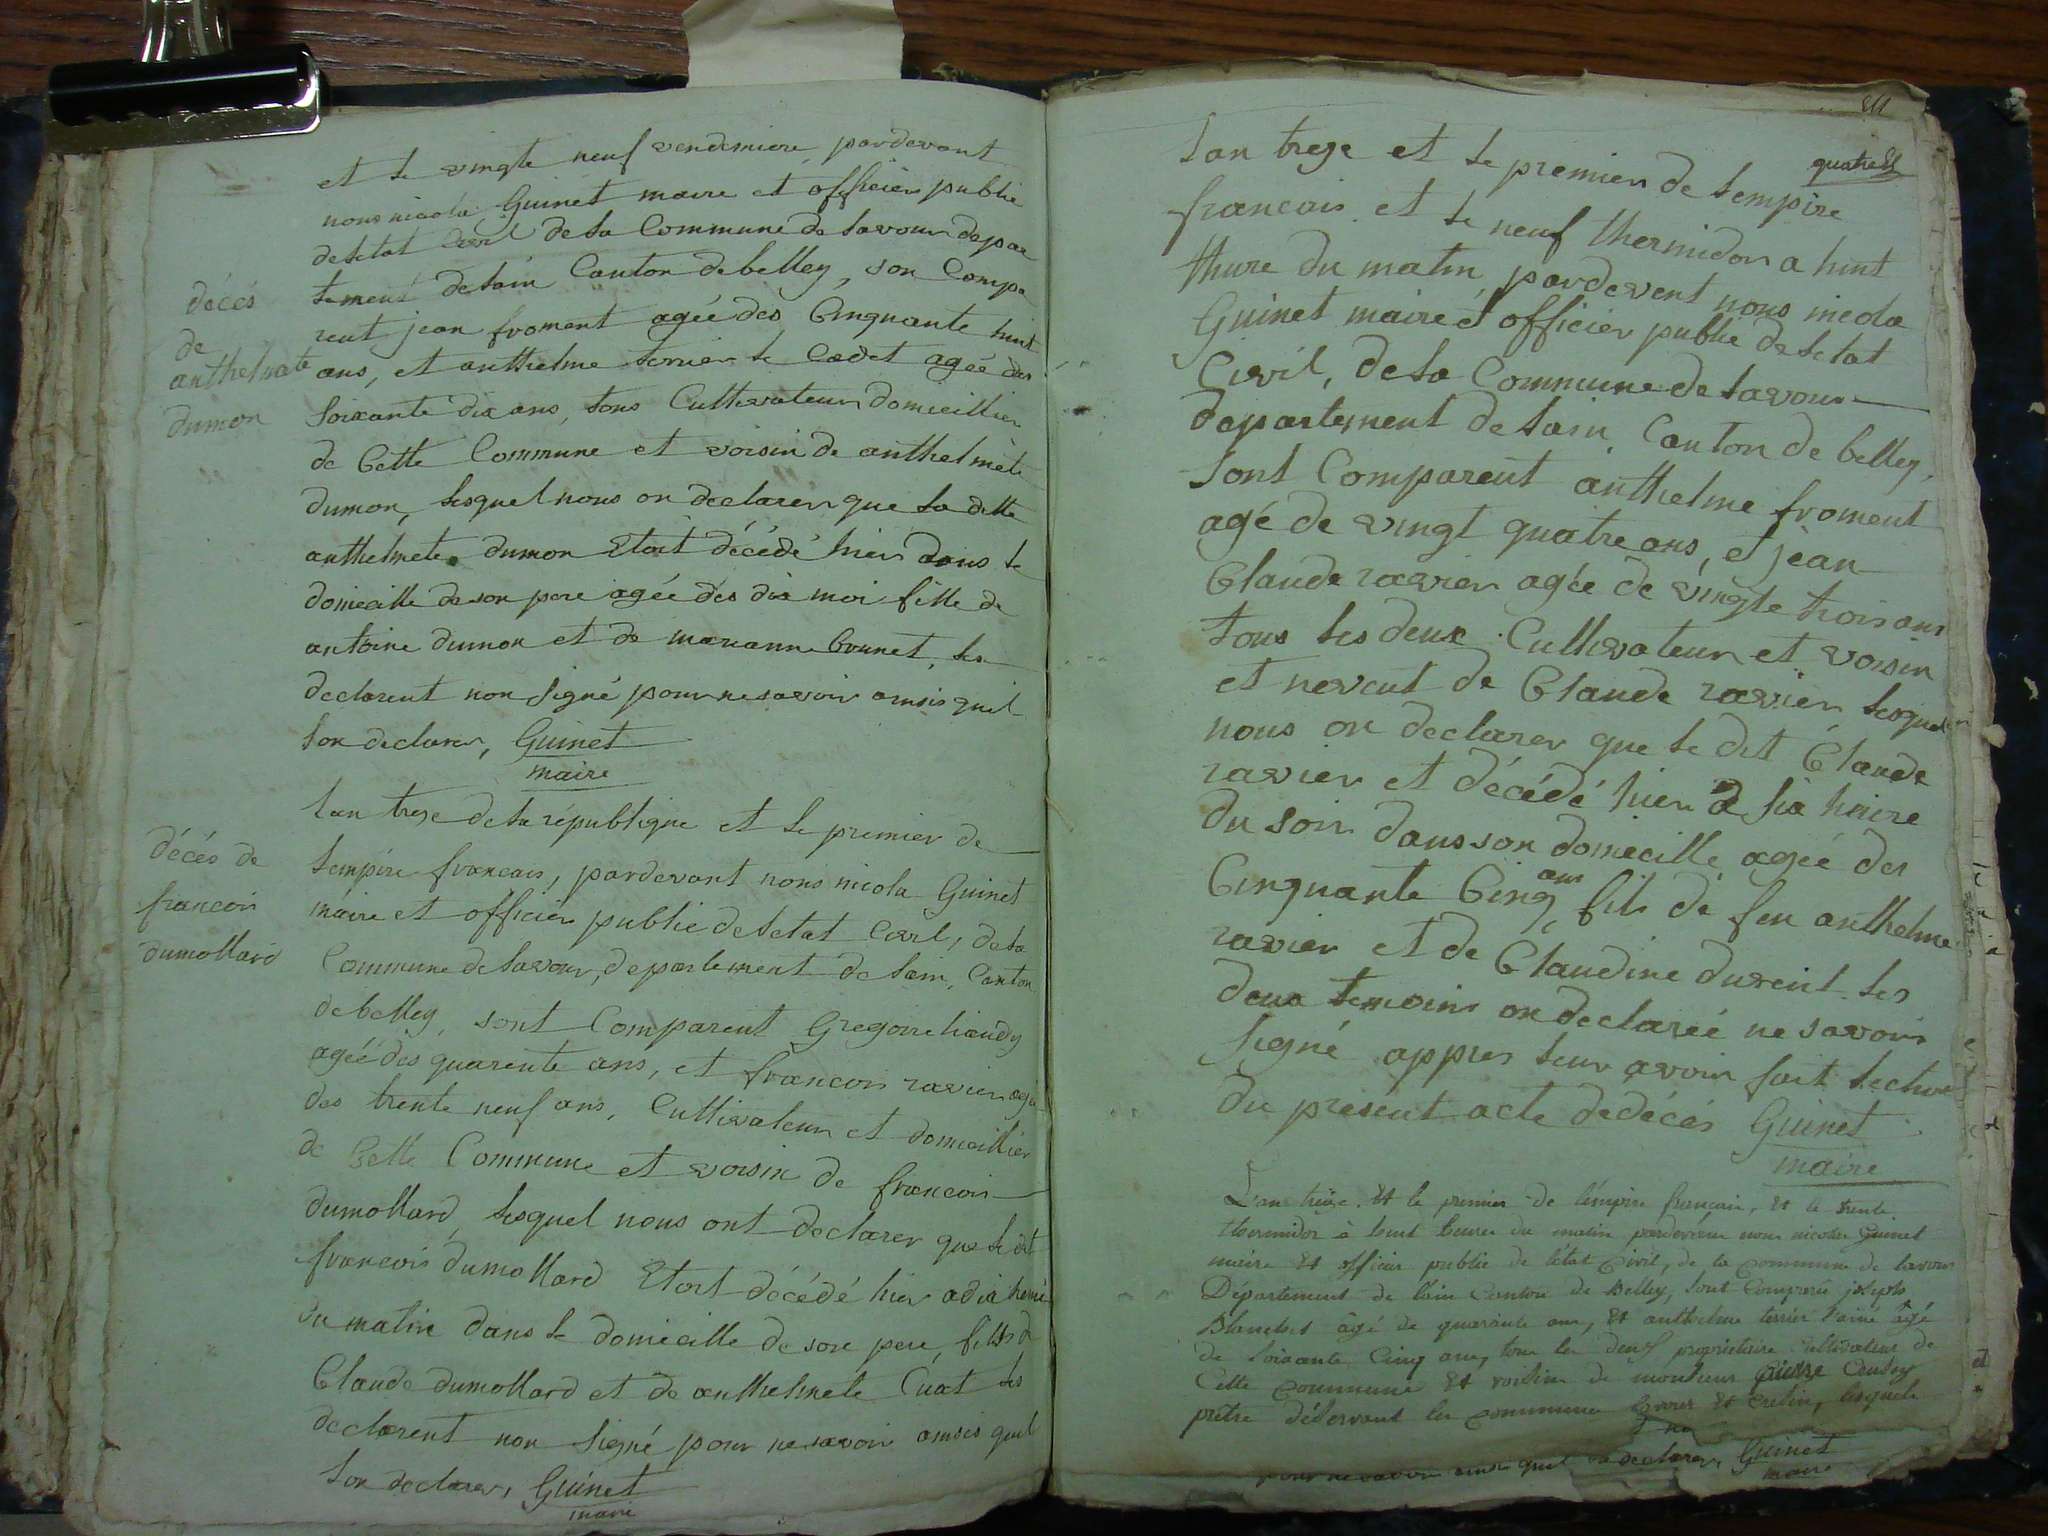 et le vingte neuf vendemiere pardevant
nous nicola Guinet maire et officier public
de letat Civil de la Commune de lavour depar
tement de lain Canton de belley, son Compa
reut jean froment agée des Cinquante huit
ans, et anthelme terrier le Cadet agée des
soixante dix ans, tous Cultivateur domicillier
de Cette Commune et voisin de anthelmete
dumon, lesquel nous on declarer que la ditte
anthelmete dumon Etoit décédé hier dans le
domicille de son pere agée des dix moi fille de
antoine dumon et de marianne brunet, les
declarent non signé pour ne savoir ainsis quil
lon declarer, Guinet
maire
décés
de
anthelmete
dumon
lan treze de la république et le premier de
lempire francais, pardevant nous nicola Guinet
maire et officier public de letat Civil, de la
Commune de lavour, departement de lain, Canton
de belley, sont Comparent Gregoire
agéé des quarente ans, et francois ravier agé
des trente neuf ans, Cultivateur et domicillier
de Cette Commune et voisin de francois
dumollard, lesquel nous ont declarer que le dit
francois dumollard Etoit décédé hier a dix heure
du matin dans le domicille de son pere, fills de
Claude dumollard et de anthelmete Cuat les
declarent non signé pour ne savoir ainsis quil
lon declarer, Guinet
maire
décés de
francois
dumollard
quatre
lan treze et le premier de lempire
francais et le neuf thermidor a huit
theure du matin, pardevent nous nicola
Guinet maire et officier public de letat
Civil, de la Commune de lavour
departement de lain Canton de belley,
sont Comparent anthelme froment
agé de vingt quatre ans, et jean
Claude ravier agée de vingte trois ans
tous les deux Cultivateur et voisin
et neveut de Claude ravier lesquel
nous on declarer que le dit Claude
ravier et décédé hier a six heure
du soir dans son domicille agée des
Cinquante Cinq ans fils de feu anthelme
ravier et de Claudine les
deux temoins on declaréé ne savoir
signé appres leur avoir fait lecture
du present acte de décés Guinet
maire
L'an treize Et le premier de l'empire francais, Et le trente
thermidor à huit heures du matin pardevant nous nicolas Guinet
maire Et officier public de l'état Civil, de la commune de lavour
Département de l'ain Canton de Belley, sont Comparu joseph
Blanchet âgé de quarante ans, Et anthelme terrier l'ainé âgé
de soixante Cinq ans, tous les deux proprietaire cultivateur de
Cette commune Et voisin de monsieur pierre
prêtre désservant les commune Et lesquels
pour ne savoir ainsi quil on declarer, Guinet
maire